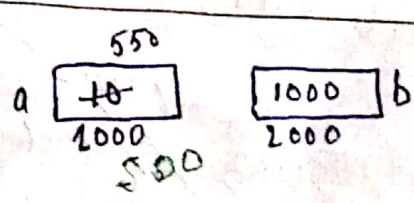 550
a 10 1000 b
1000 2000
500